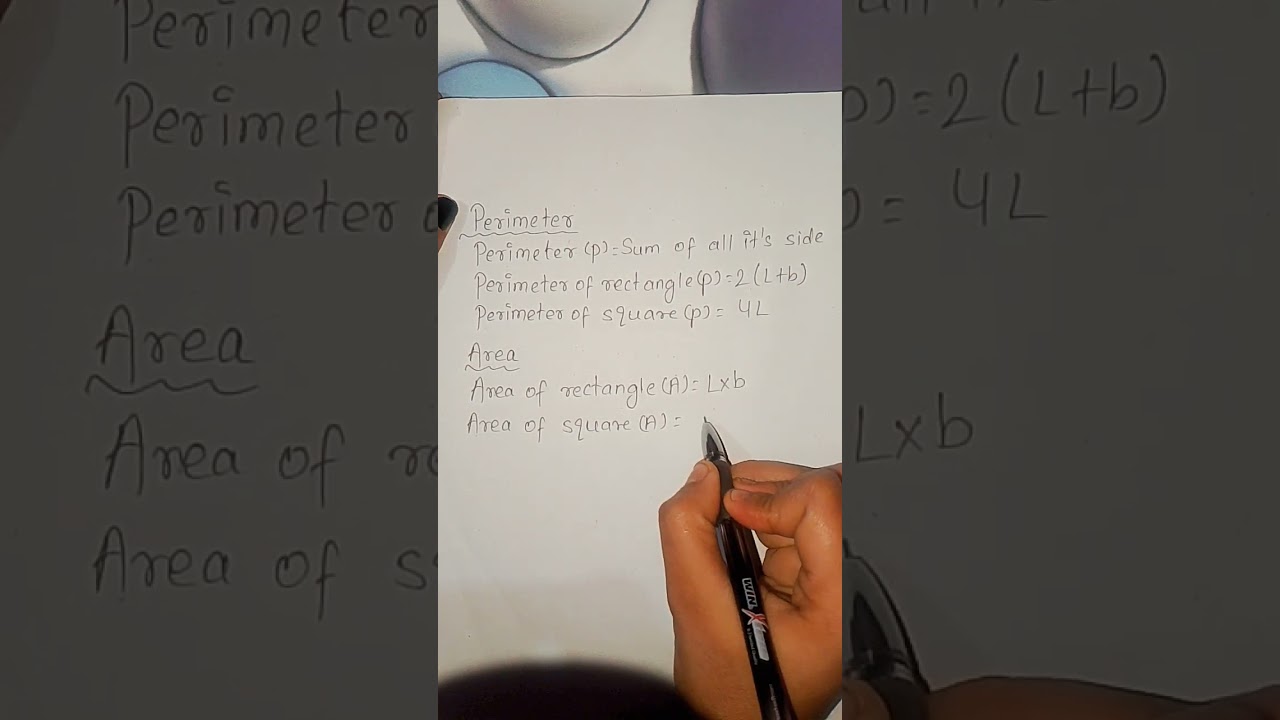 Perimeter
Perimeter (p)=Sum of all it's side
Perimeter of rectangle(p)=2(L+b)
Perimeter of square(p)= 4L
Area
Area of rectangle(A)= L×b
Area of square(A)=
WIN X